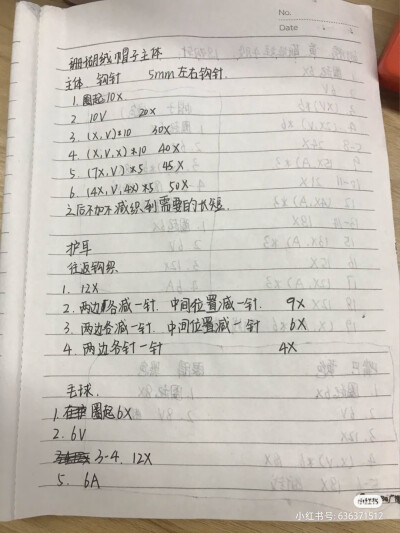 No.
Date
珊瑚绒帽子主体
主体 钩针 5mm左右钩针.
1. 圈起10X
2 10V 20X
3. (X,V)*10 30X
4. (X,V,X)*10 40X
5. (7X,V)*5 45X
6. (4X,V,4X)*5 50X
之后不加不减织到需要的长短.
护耳
往返钩织
1. 12X
2. 两边各减一针. 中间位置减一针 9X
3. 两边各减一针. 中间位置减一针 6X
4. 两边各针一针 4X
毛球.
1. 圈起6X
2. 6V
3-4. 12X
5. 6A
小红书
小红书号: 636371512